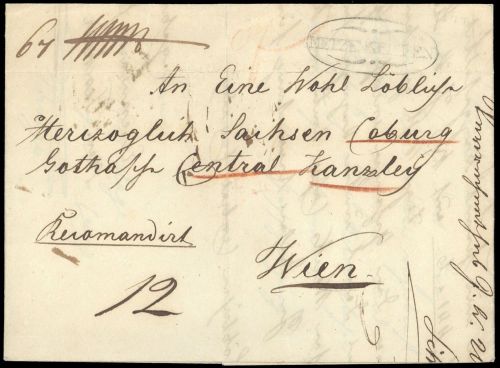 67
An Eine Wohl Löbliche
Herzoglich Sachsen Coburg
Gothasche Central Kanzley
Recomandirt
Wien.
12